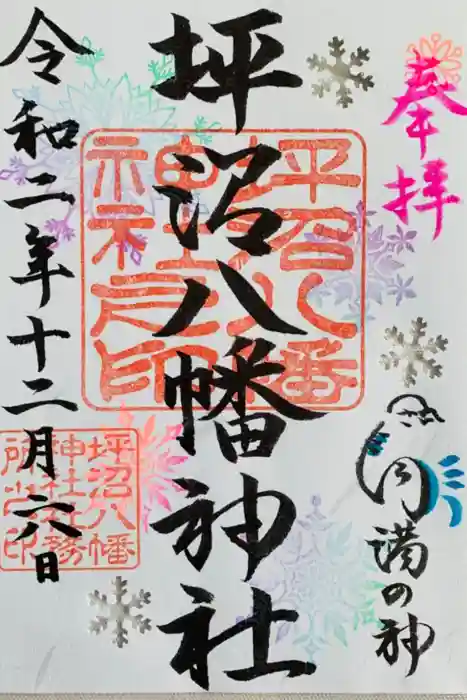 奉拝
円満の神
坪沼八幡神社
令和二年十二月六日
坪沼八幡
神社社務
所之印